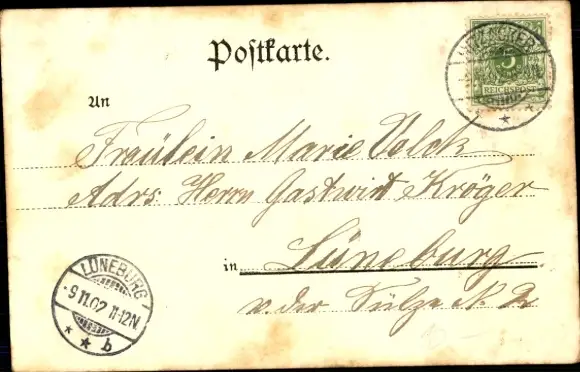 Postkarte.
HITZACKER
5
REICHSPOST
An
Fräulein Marie Volck
Adrs. Herrn Gastwirt Kröger
in Lüneburg.
v. der Sülze N. 2
LÜNEBURG
-9.11.02 11-12N.
* * b